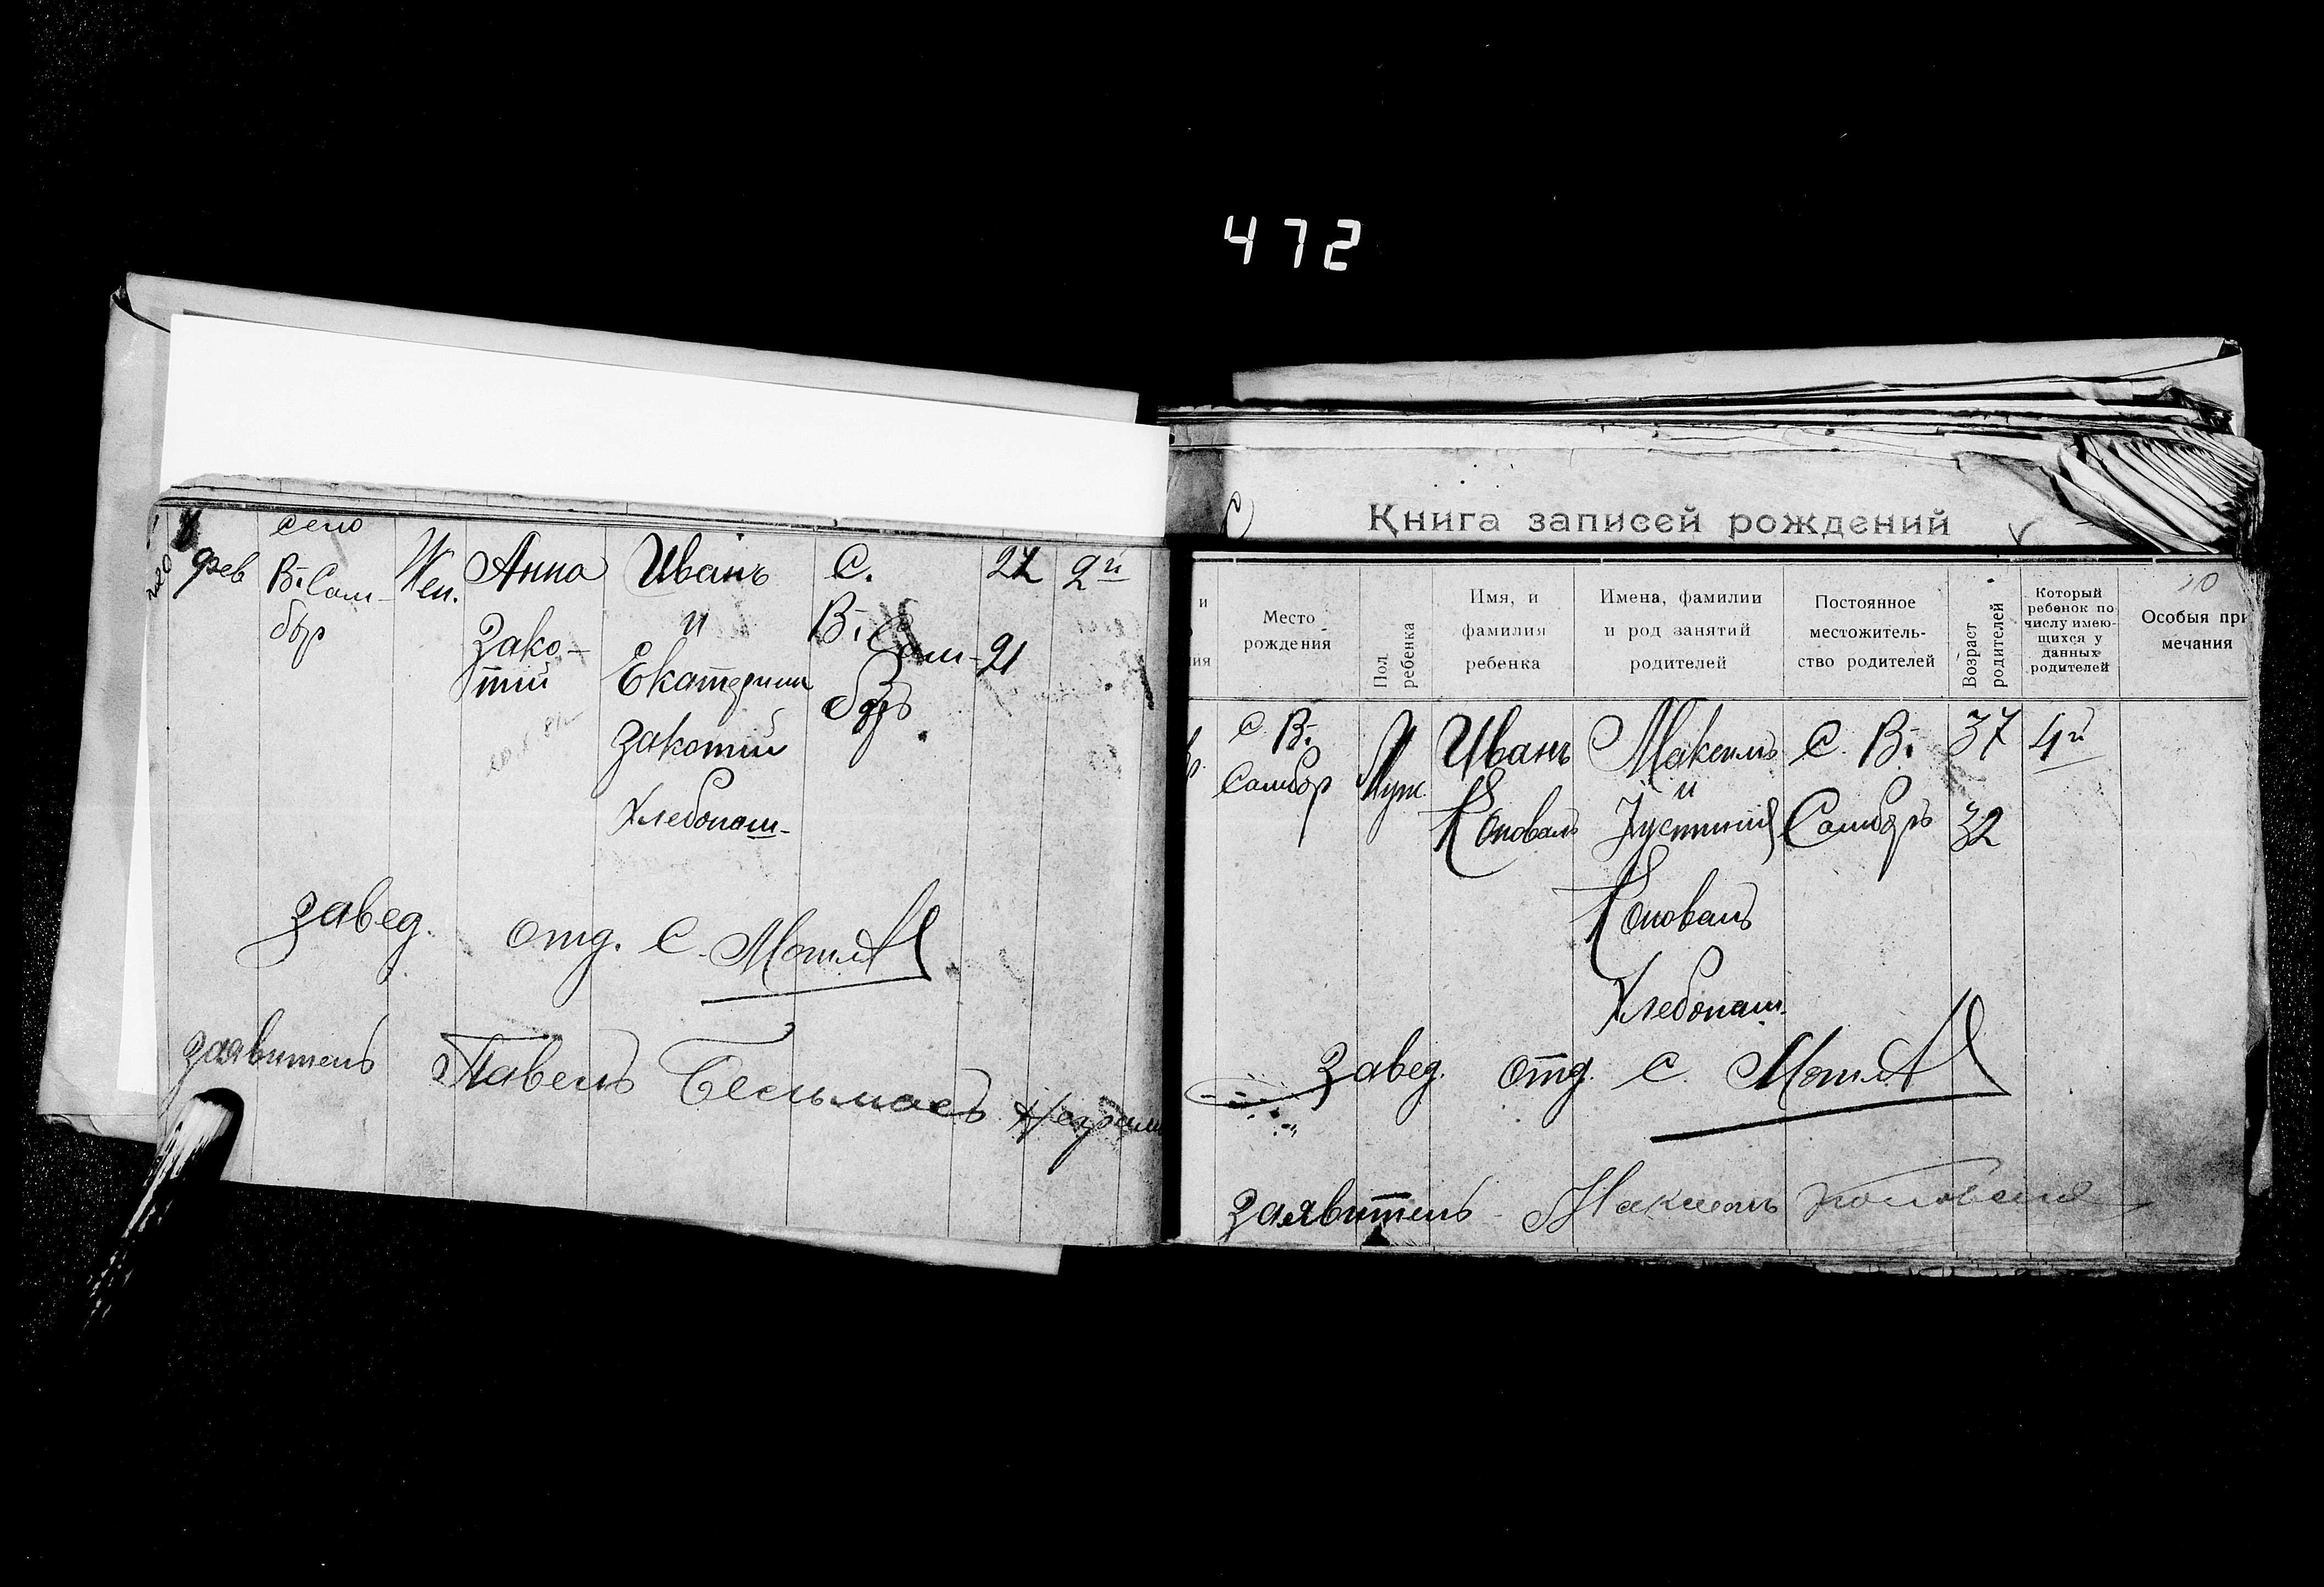 472
село
8 фев
В. Сам-
бор
Жен.
Анна
Зако-
тий
Иванъ
и
Екатерина
Закотий
Хлебопаш-
С.
В. Сам-
боръ
27
21
2й
завед. отд. С.
заявитель Павелъ
Книга записей рождений
и
ия
Место
рождения
Пол
ребенка
Имя, и
фамилия
ребенка
Имена, фамилии
и род занятий
родителей
Постоянное
местожитель-
ство родителей
Возраст
родителей
Который
ребенок по
числу имею-
щихся у
данных
родителей
10
Особыя при
мечания
р.
с В.
Самбор
Муж
Иванъ
Коновалъ
Максимъ
и
Устиния
Коновалъ
Хлебопаш-
С. В.
Самборъ
37
32
4й
Завед. отд. С.
заявитель Максимъ Коновалъ